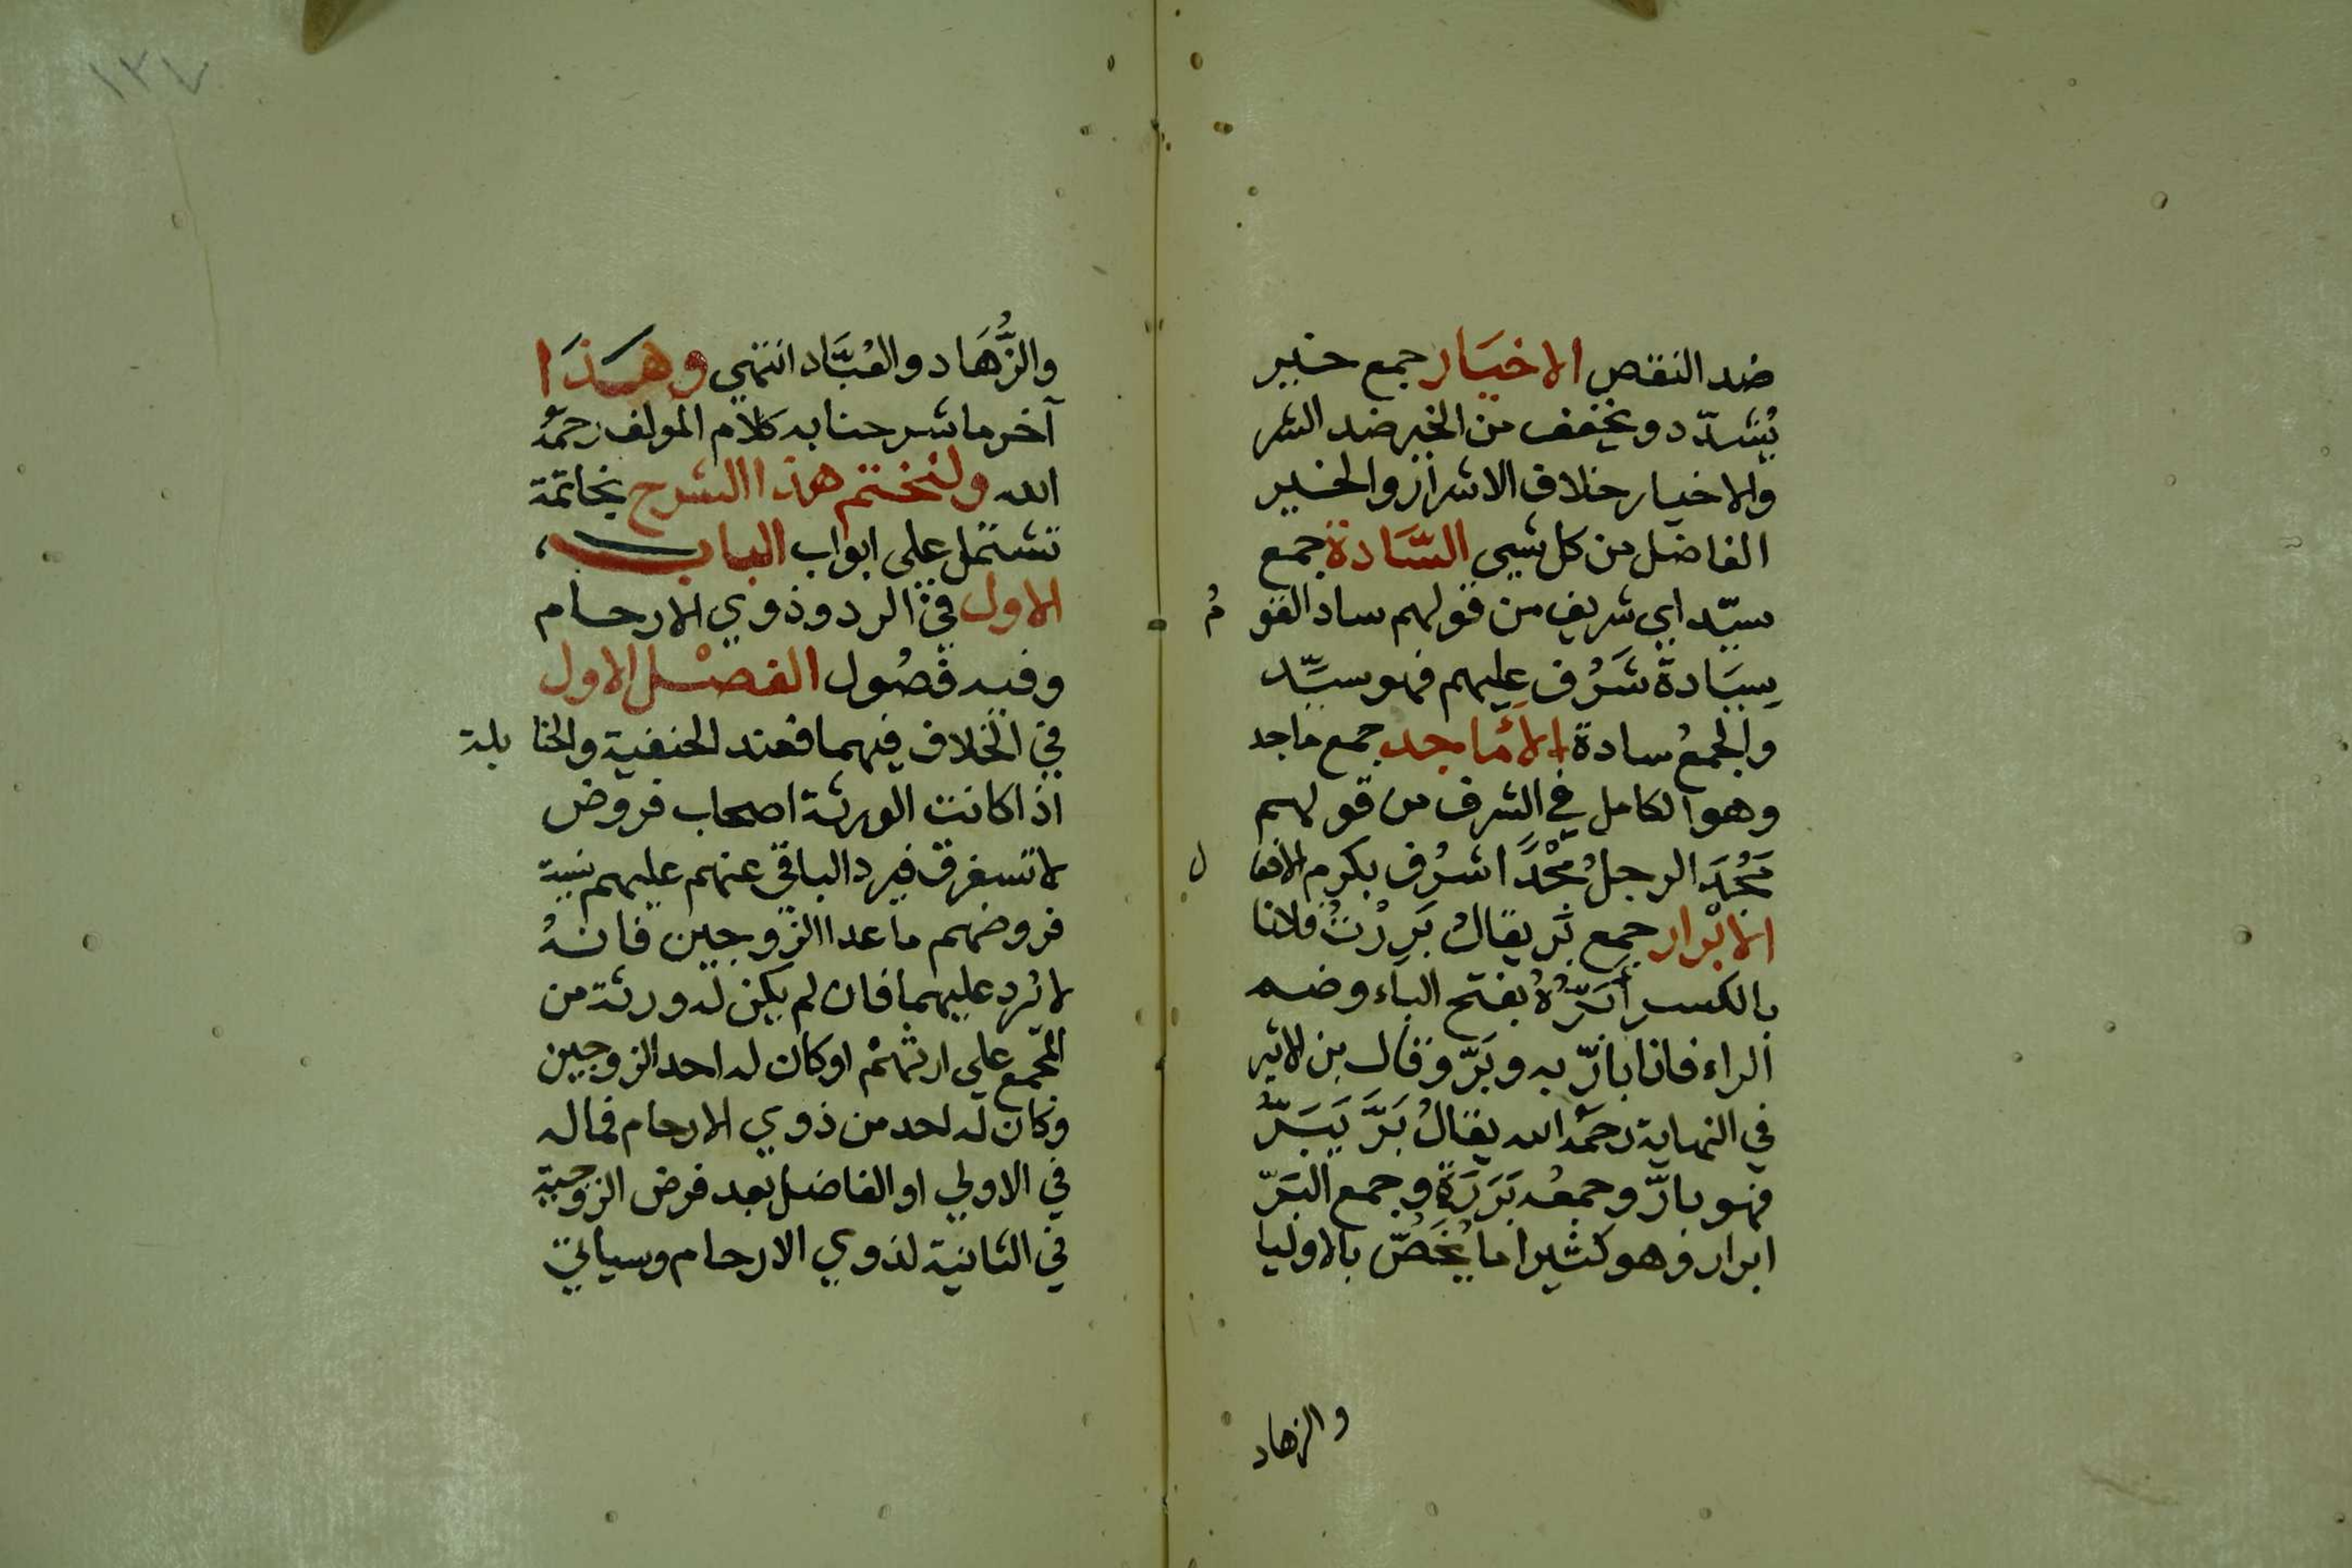 ضد النقص الاخيَار جمع خير
يُشدّد ويخفف من الخير ضد الشر
والاخيار خلاف الاشرار والخير
الفاضل من كل شيى السَّادة جمع
سيّد اي شريف من قولهم ساد القوم
سِيَادة شَرُف عليهم فهو سيِّد
والجمعُ سادة الأماجد جمع ماجد
وهو الكامل في الشرف من قولهم
مَجُدَ الرجلُ مَجْدًا شرُف بكرم الافعال
الابْرار جمع بَر يقالُ بَرِرْتُ فلانا
بالكسر أَبَرُّهُ بفتح الباء وضم
الراء فانا بارّ به وبَرّ وقال بن الاثير
في النهاية رحمَه الله يقالُ بَرَّ يَبَرُّ
فهو بارّ وجمعُه بَرَرَة وجمع البَرّ
ابرار وهو كثيرا ما يُخَصّ بالاوليا
والزهاد
١٣٧
والزُّهَاد والعُبَّاد انتهي وهَذَا
آخر ما شرحنا به كلام المولف رحمَهُ
الله ولنختم هذا الشرح بخاتمة
تشتمل على ابواب الباب
الاول في الرد وذوي الارحام
وفيه فصُول الفصْل الاول
في الخلاف فيهما فعند الحنفية والحنابلة
اذا كانت الورثة اصحاب فروض
لا تستغرق فيرد الباقي عنهم عليهم بنسبة
فروضهم ما عدا الزوجين فانهُ
لا يُرد عليهما فان لم يكن له ورثة من
المجمع علي ارثهمْ او كان له احد الزوجين
وكان له احد من ذوي الارحام فماله
في الاولي او الفاضل بعد فرض الزوجية
في الثانية لذوي الارحام وسياتي